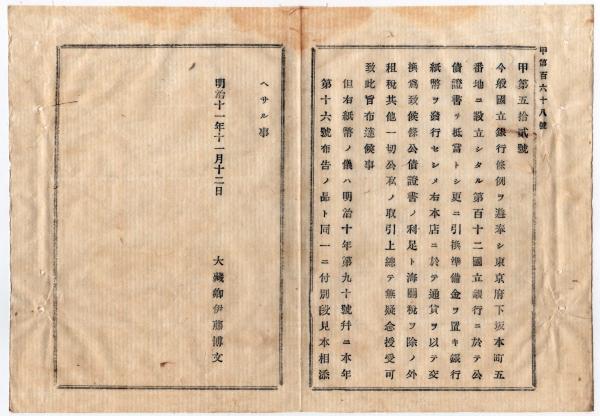 甲第百六十八號
甲第五拾貳號
今般國立銀行條例ヲ遵奉シ東京府下坂本町五
番地ニ設立シタル第百十二國立銀行ニ於テ公
債證書ヲ抵當トシ更ニ引換準備金ヲ置キ銀行
紙幣ヲ發行セシメ右本店ニ於テ通貨ヲ以テ交
換爲致候條公債證書ノ利足ト海關稅ヲ除ノ外
租稅其他一切公私ノ取引上總テ無疑念授受可
致此旨布達候事
但右紙幣ノ儀ハ明治十年第九十號幷ニ本年
第十六號布告ノ品ト同一ニ付別段見本相添
ヘサル事
明治十一年十一月十二日
大藏卿伊藤博文